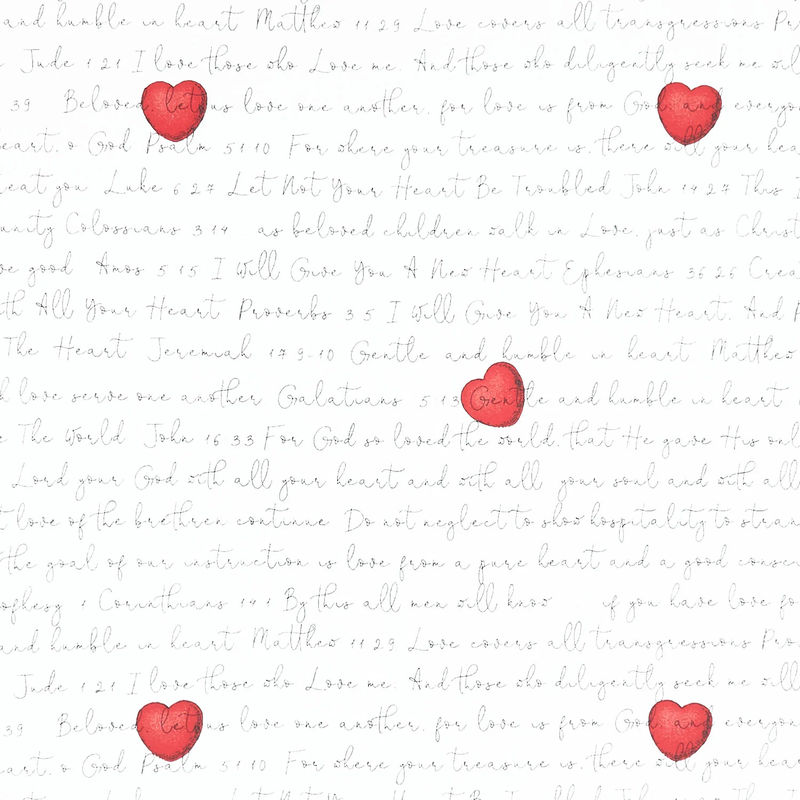 and humble in heart Matthew 11 29 Love covers all transgressions Pr
Jude 1 21 I love those who Love me. And those who diligently seek me wil
39 Beloved, let us love one another, for love is from God and everyon
heart, o God Psalm 51 10 For where your treasure is, there will your hea
reat you Luke 6 27 Let Not Your Heart Be Troubled John 14 27 This I
unity Colossians 3 14 as beloved children walk in Love, just as Christ
ve good Amos 5 15 I Will Give You A New Heart Ephesians 36 26 Crea
ith All Your Heart Proverbs 3 5 I Will Give You A New Heart, And P
The Heart Jeremiah 17 9-10 Gentle and humble in heart Matthew
h love serve one another Galatians 5 13 Gentle and humble in heart
e The World John 16 33 For God so loved the world, that He gave His onl
Lord your God with all your heart and with all your soul and with all
t love of the brethren continue Do not neglect to show hospitality to stran
the goal of our instruction is love from a pure heart and a good consci
ophesy 1 Corinthians 14 1 By this all men will know if you have love fo
and humble in heart Matthew 11 29 Love covers all transgressions Pro
Jude 1 21 I love those who Love me. And those who diligently seek me will
39 Beloved, let us love one another, for love is from God and everyon
eart, o God Psalm 51 10 For where your treasure is, there will your hear
Luke 6 27 Let Not Your Heart Be Troubled John 14 27 This